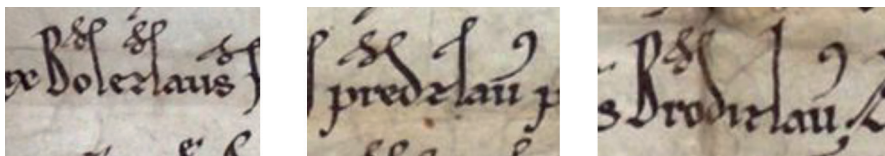 Bolezlaus
predzlau
Brodizlau